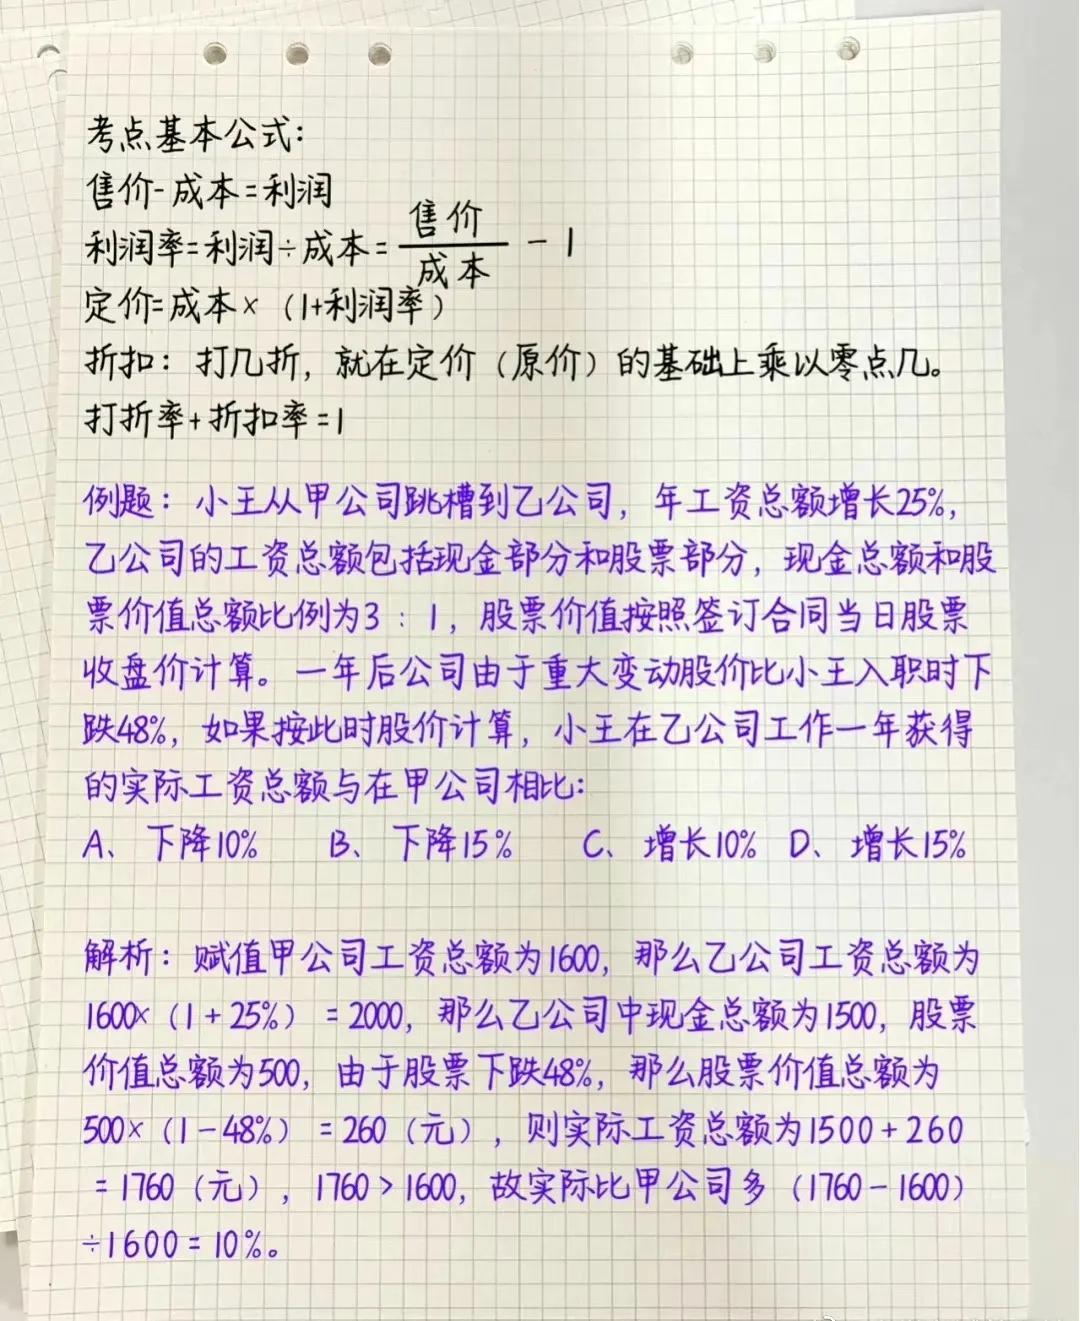 考点基本公式：
售价-成本=利润
利润率=利润÷成本=售价/成本-1
定价=成本×（1+利润率）
折扣：打几折，就在定价（原价）的基础上乘以零点几。
打折率+折扣率=1
例题：小王从甲公司跳槽到乙公司，年工资总额增长25%，
乙公司的工资总额包括现金部分和股票部分，现金总额和股
票价值总额比例为3：1，股票价值按照签订合同当日股票
收盘价计算。一年后公司由于重大变动股价比小王入职时下
跌48%，如果按此时股价计算，小王在乙公司工作一年获得
的实际工资总额与在甲公司相比：
A、下降10% B、下降15% C、增长10% D、增长15%
解析：赋值甲公司工资总额为1600，那么乙公司工资总额为
1600×（1+25%）=2000，那么乙公司中现金总额为1500，股票
价值总额为500，由于股票下跌48%，那么股票价值总额为
500×（1-48%）=260（元），则实际工资总额为1500+260
=1760（元），1760>1600，故实际比甲公司多（1760-1600）
÷1600=10%。